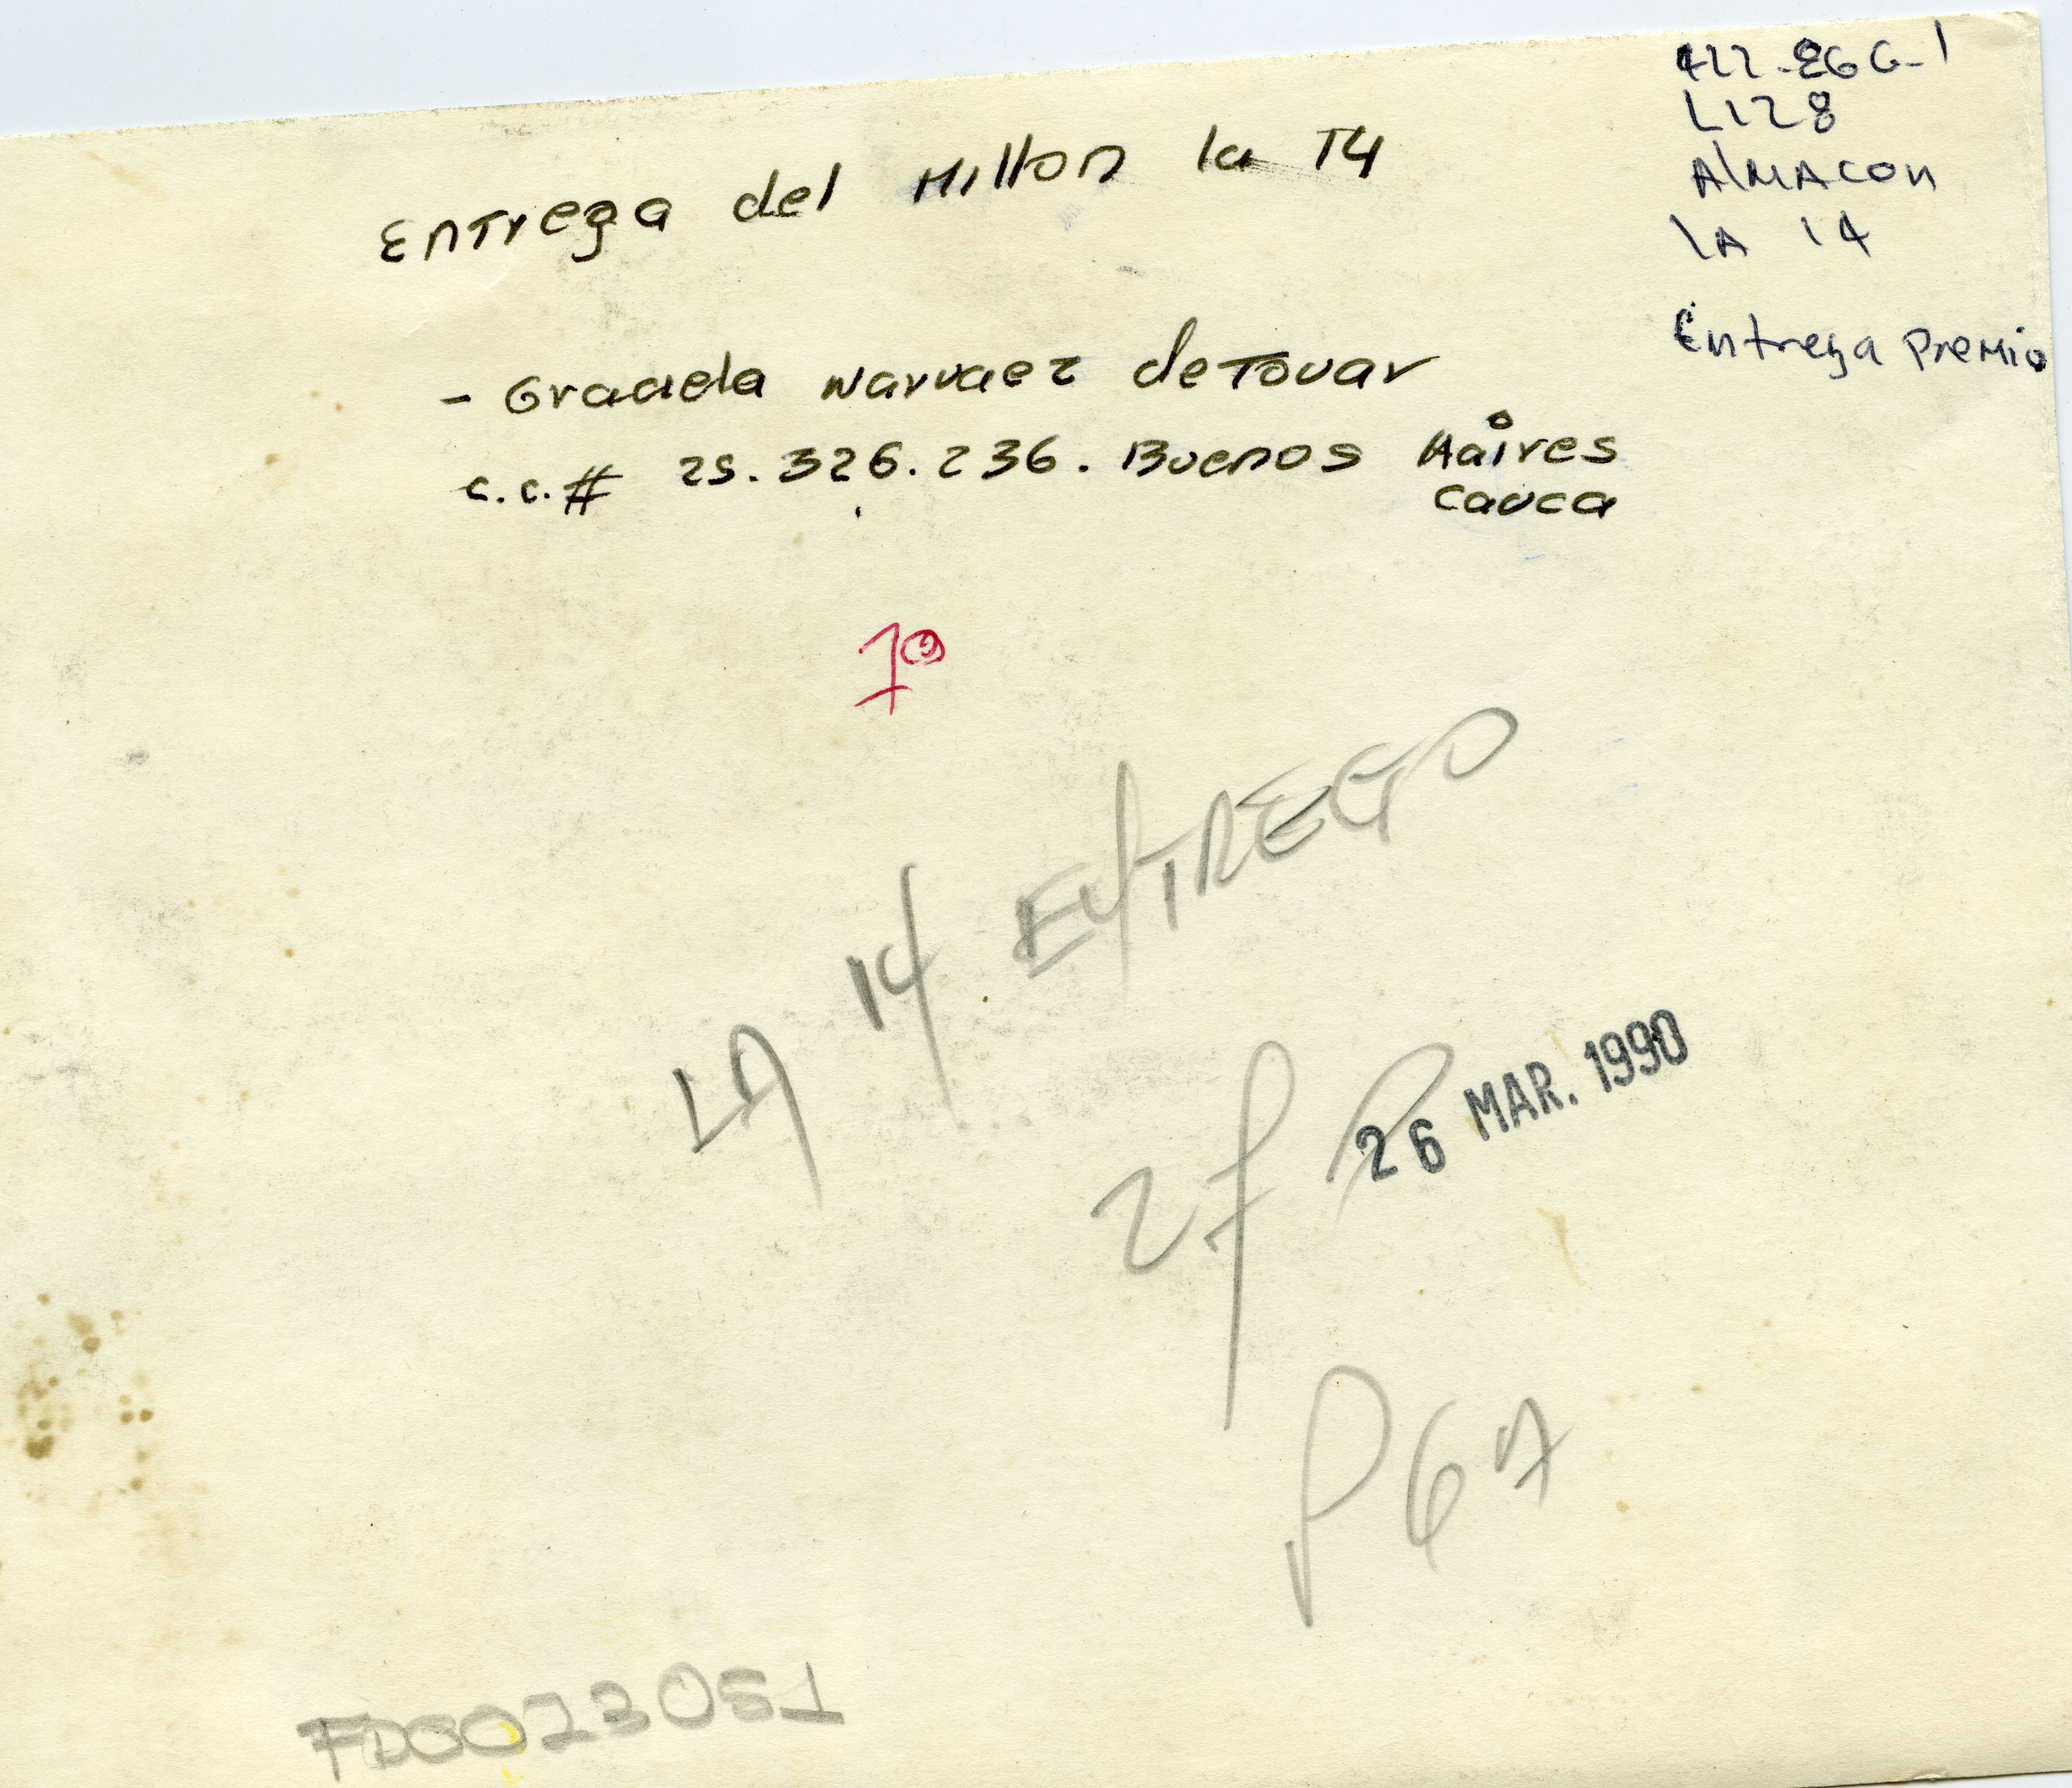 422-866-1
L128
AlMAcon
LA 14
Entrega Premio
Entrega del Millon la 14
- Graciela Narvaez de Tovar
c.c.# 25.326.236. Buenos Aaires
Cauca
1º
LA 14 ENTREGO
27 P
26 MAR. 1990
P 6A